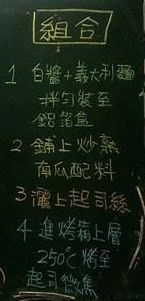 組合
1 白醬+義大利麵
拌勻裝至
鋁箔盒
2 鋪上炒熟
南瓜配料
3 灑上起司絲
4 進烤箱上層
250℃ 烤至
起司微焦